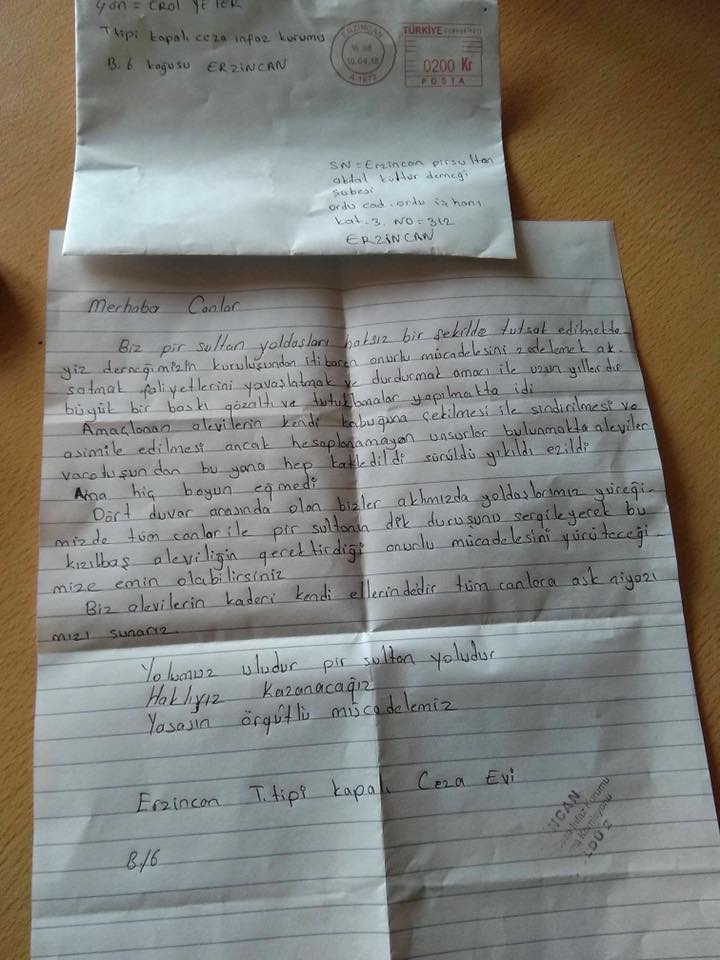 Gön = EROL YETER
T.tipi kapalı ceza infaz kurumu
B.6 koğuşu ERZİNCAN
ERZİNCAN
10.04.18
A-1872
TÜRKİYE CUMHURİYETİ
0200 Kr
POSTA
SN = Erzincan pirsultan
abdal kültür derneği
şubesi
ordu cad. ordu iş hanı
kat. 3. NO = 312
ERZİNCAN
Merhaba Canlar
Biz pir sultan yoldaşları haksız bir şekilde tutsak edilmekte
yiz derneğimizin kuruluşundan itibaren onurlu mücadelesini zedelemek ak.
satmak faliyetlerini yavaslatmak ve durdurmak amacı ile uzun yıllardır
büyük bir baskı gözaltı ve tutuklamalar yapılmakta idi
Amaçlanan alevilerin kendi kabuguna çekilmesi ile sindirilmesi ve
asimile edilmesi ancak hesaplanamayan unsurlar bulunmakta aleviler
varotuşundan bu yana hep katledildi sürüldü yıkıldı ezildi
Ama hiç boyun eğmedi
Dört duvar arasında olan bizler aklımızda yoldaşlarımız yüreği-
mizde tüm canlar ile pir sultanın dik duruşunu sergileyerek bu
kızılbaş aleviliğin gerektirdiği onurlu mücadelesini yürüteceği-
mize emin olabilirsiniz
Biz alevilerin kaderi kendi ellerindedir tüm canlara aşk niyazı
mızı sunarız.
Yolumuz uludur pir sultan yoludur
Haklıyız kazanacağız
Yasasın örgütlü mücadelemiz
Erzincan T.tipi kapalı Ceza Evi
B/6